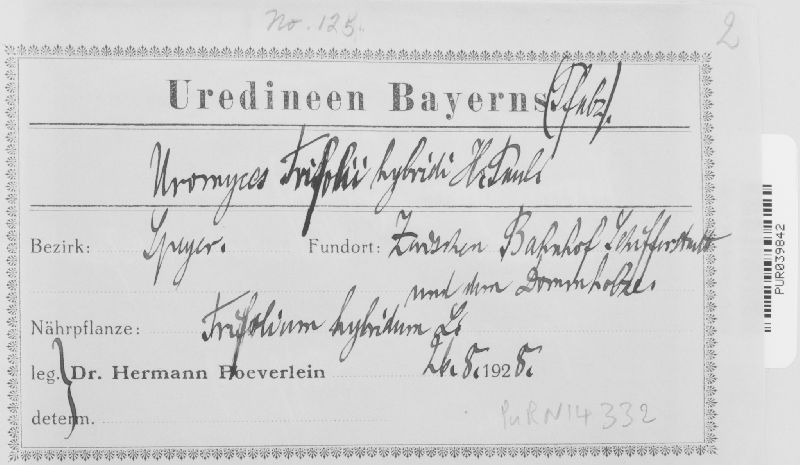 No. 125.
2
Uredineen Bayerns (Pfalz).
Uromyces Trifolii hybridi H. Paul
Bezirk: Speyer. Fundort: Zwischen Bahnhof Schifferstadt
und dem
Nährpflanze: Trifolium hybridum L.
leg. } Dr. Hermann Poeverlein 26. 8. 1928.
determ.
PURN14332
PUR039842